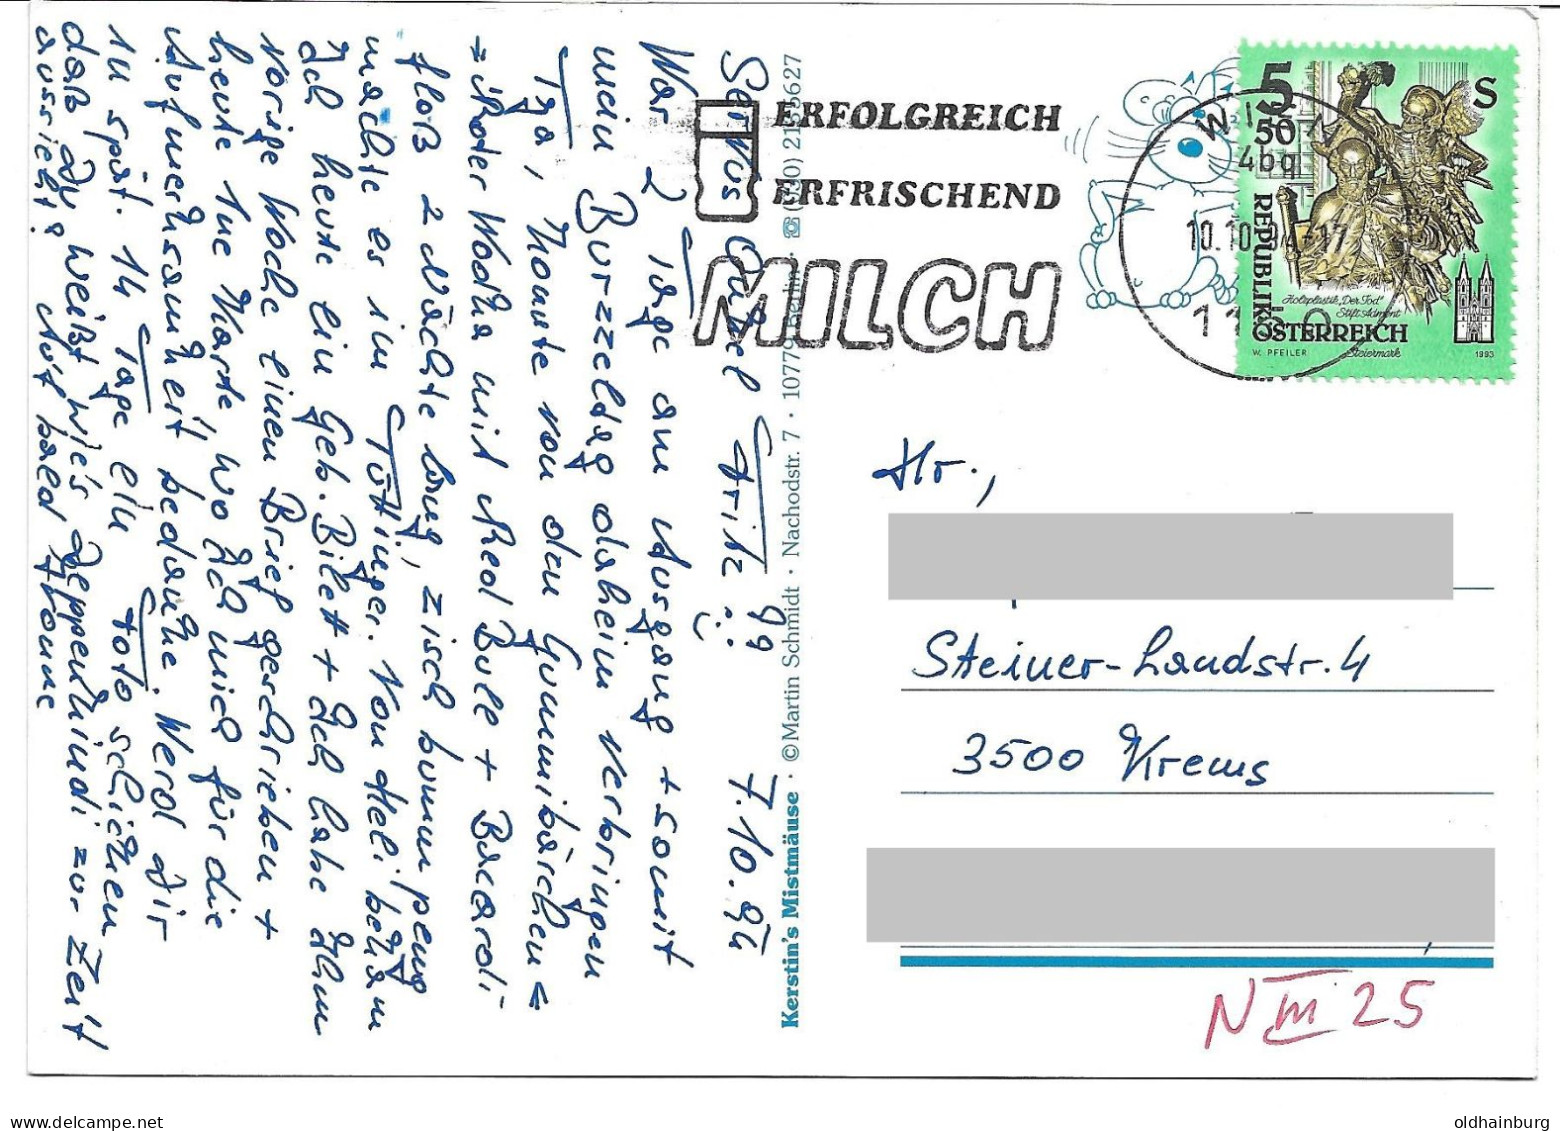 Servus Onkel Fritz !! 7.10.94
War 2 Tage am Ausgang + somit
mein Burzzeldag daheim verbringen
Tja, konnte von den Gummibärchen =
= Roter Wodka mit Red Bull + Bacardi
floß 2 Nächte lang, zisch bumm peng
machte es im Tüttinger. Von Heli bekam
Ich heute ein Geb. Bilett + Ich habe Ihm
vorige Woche einen Brief geschrieben +
heute 1ne Karte, wo Ich mich für die
Aufmerksamkeit bedanke. Werd Dir
in spät. 14 Tage ein Foto schicken
daß Du weißt wie's Deppenkindi zur Zeit
aussieht! Auf bald
Kerstin's Mistmäuse · © Martin Schmidt · Nachodstr. 7 · 10779 Berlin · ☏ (030) 2135627
ERFOLGREICH
ERFRISCHEND
MILCH
WI
4bq
10.10.94-17
11
5
50
S
REPUBLIK
ÖSTERREICH
Holzplastik „Der Tod"
Stift Admont
Steiermark
W. PFEILER
1993
Hr.,
Steiner-Landstr. 4
3500 Krems
N III 25
oldhainburg